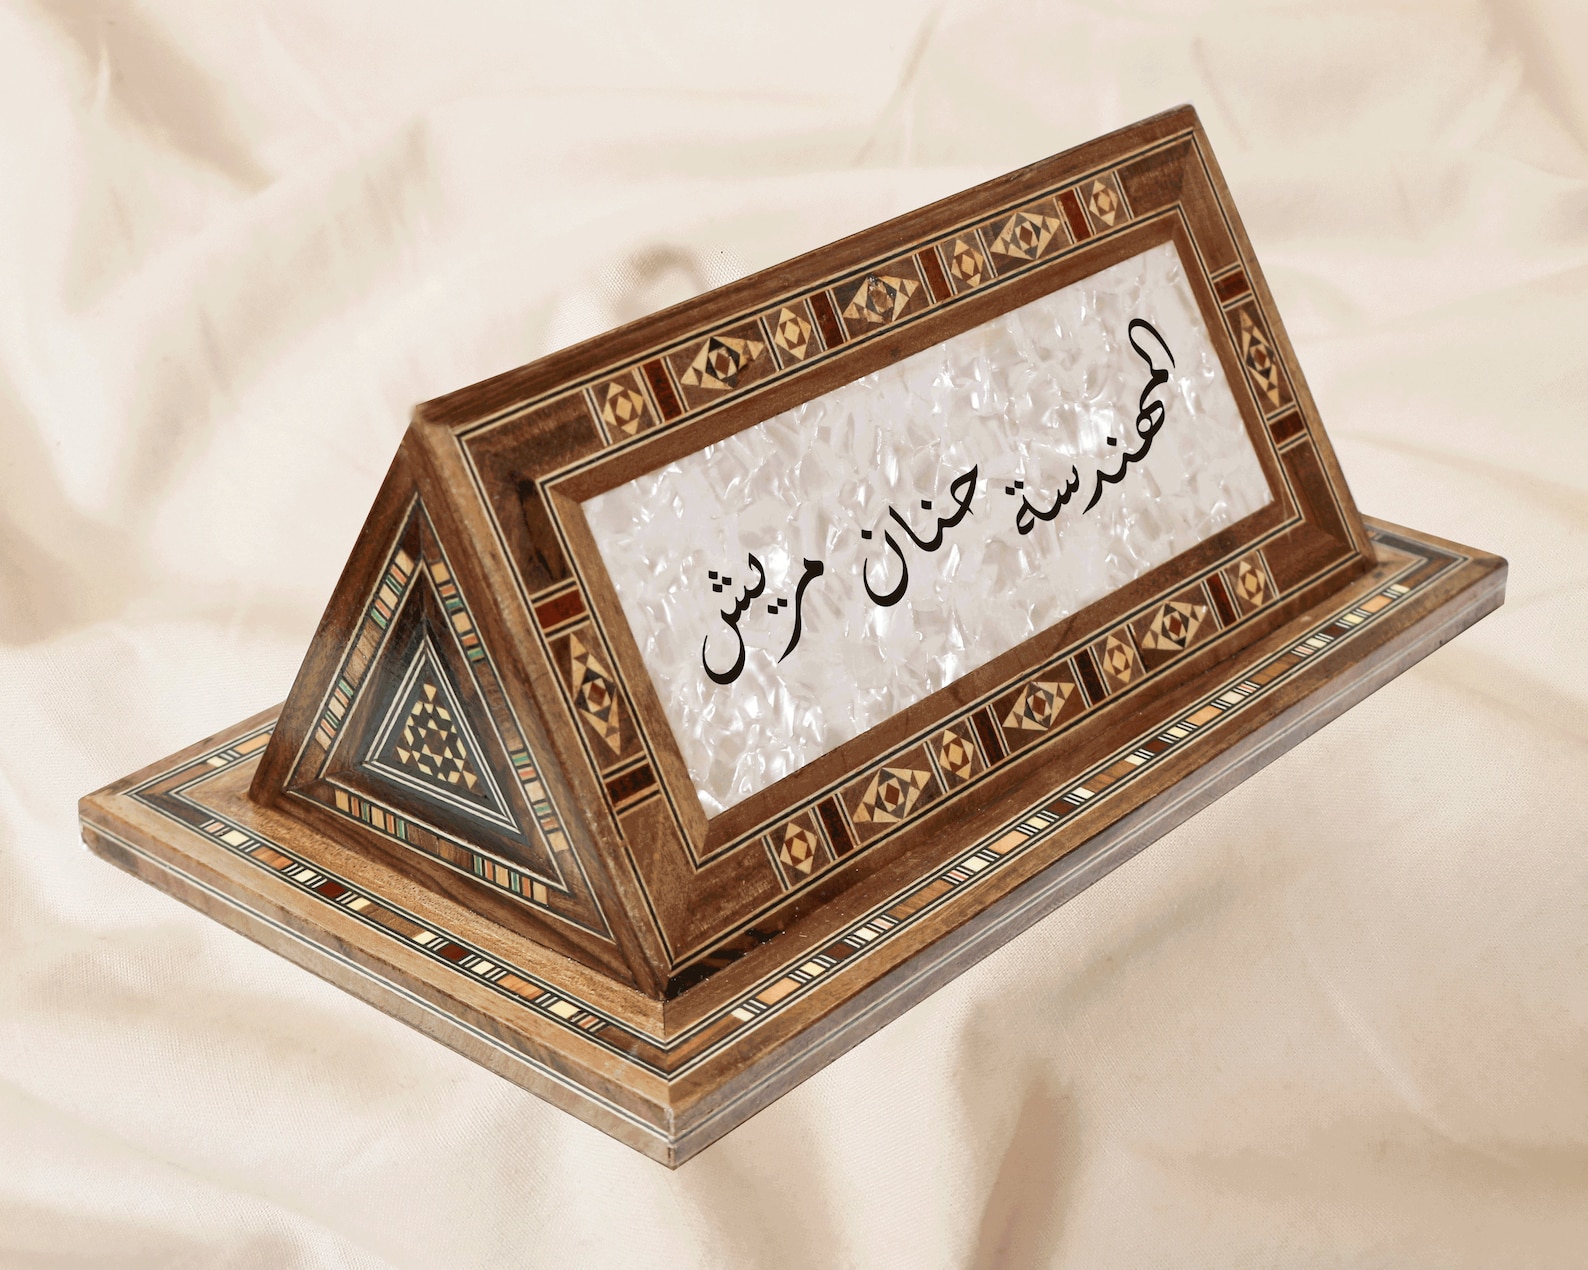 المهندسة حنان مريش